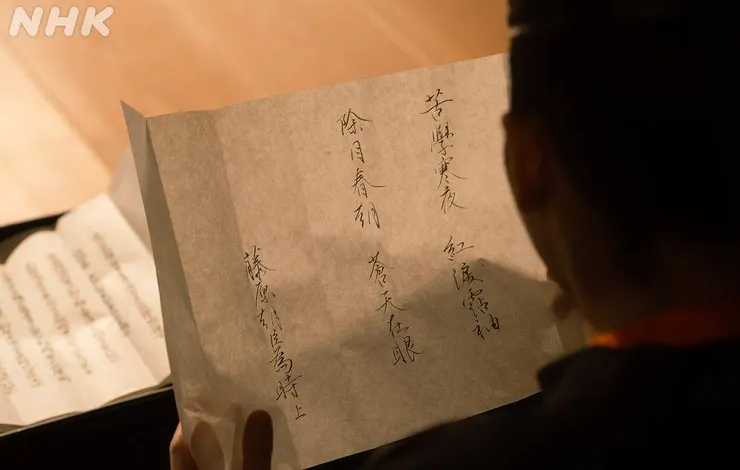 NHK
苦學寒夜 紅涙霑袖
除目春朝 蒼天在眼
藤原朝臣為時上